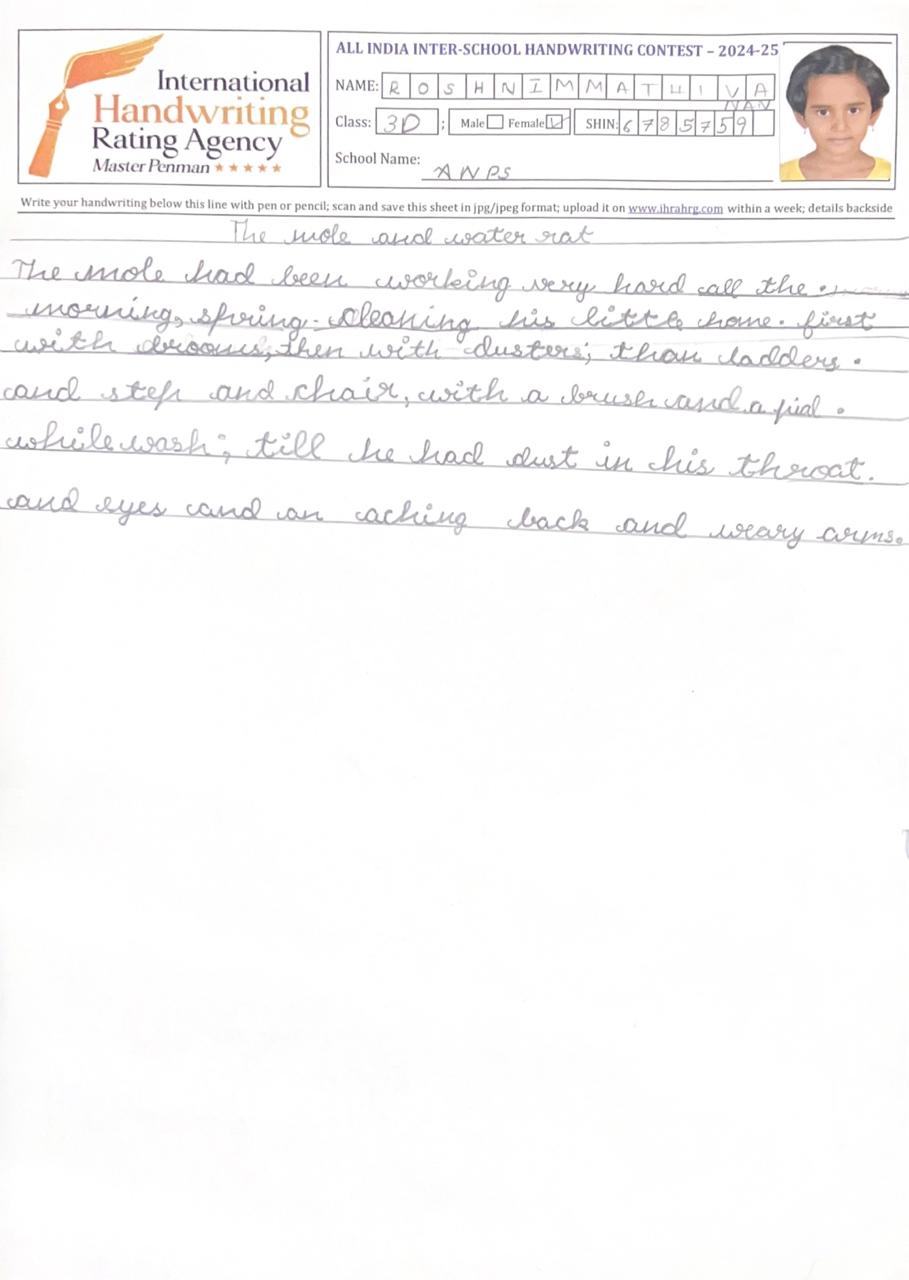 International
Handwriting
Rating Agency
Master Penman
ALL INDIA INTER-SCHOOL HANDWRITING CONTEST – 2024-25
NAME: ROSHNI M MATHIVA
NAN
Class: 3D ; Male Female SHIN: 6785759
School Name: ANPS
Write your handwriting below this line with pen or pencil; scan and save this sheet in jpg/jpeg format; upload it on www.ihrahrg.com within a week; details backside
The mole and water rat
The mole had been working very hard all the
morning, spring-cleaning his little home. first
with brooms, then with dusters; than ladders.
and step and chair, with a brush and a pial.
while wash; till he had dust in his throat.
and eyes and an aching back and weary arms.